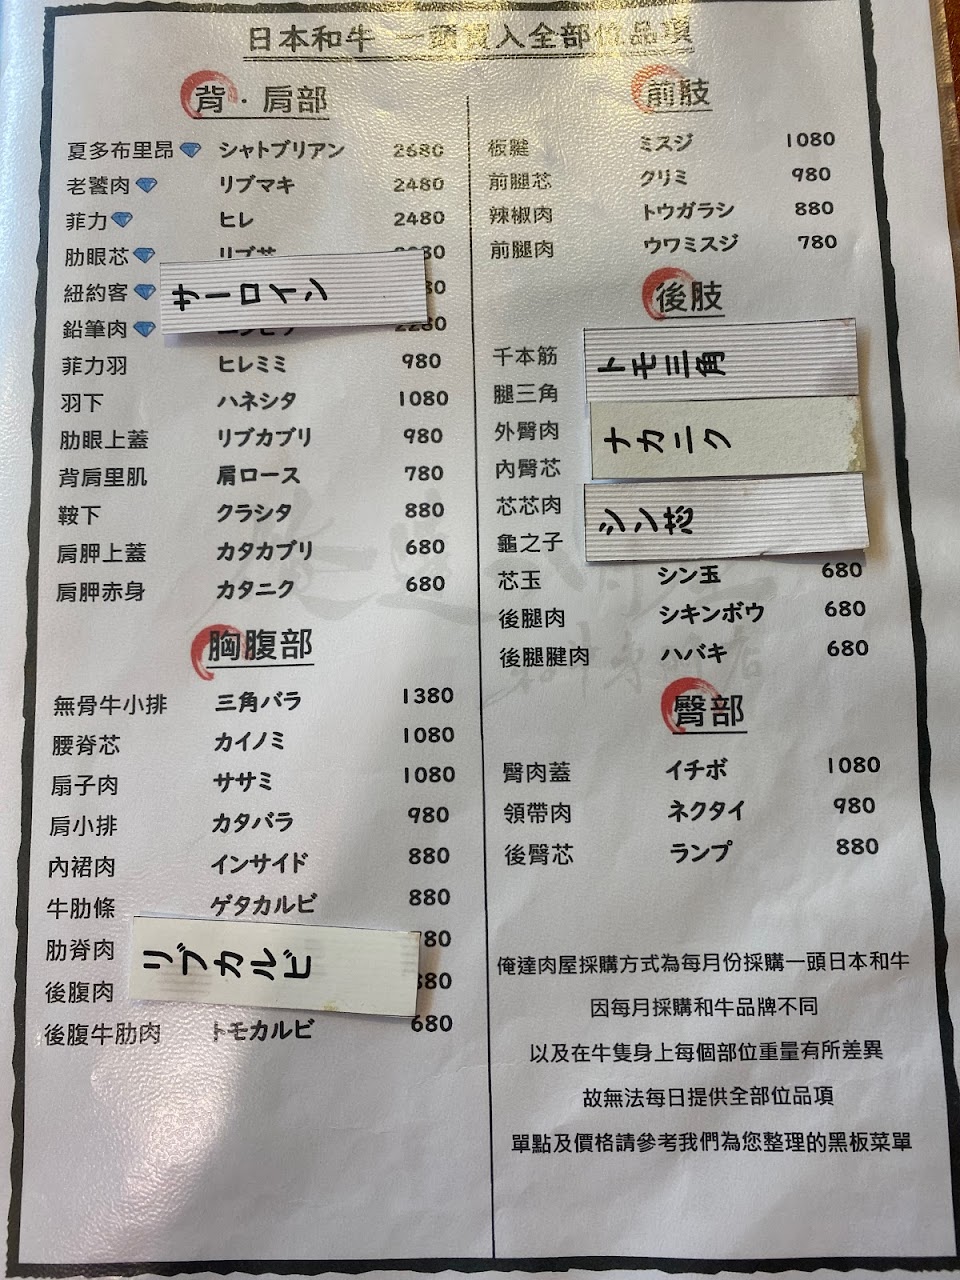 日本和牛 一頭買入全部位品項
背・肩部
夏多布里昂 シャトブリアン 2680
老饕肉 リブマキ 2480
菲力 ヒレ 2480
肋眼芯 80
紐約客 サーロイン 80
鉛筆肉 2280
菲力羽 ヒレミミ 980
羽下 ハネシタ 1080
肋眼上蓋 リブカブリ 980
背肩里肌 肩ロース 780
鞍下 クラシタ 880
肩胛上蓋 カタカブリ 680
肩胛赤身 カタニク 680
胸腹部
無骨牛小排 三角バラ 1380
腰脊芯 カイノミ 1080
扇子肉 ササミ 1080
肩小排 カタバラ 980
內裙肉 インサイド 880
牛肋條 ゲタカルビ 880
肋脊肉 リブカルビ 80
後腹肉 80
後腹牛肋肉 トモカルビ 680
前肢
板腱 ミスジ 1080
前腿芯 クリミ 980
辣椒肉 トウガラシ 880
前腿肉 ウワミスジ 780
後肢
千本筋
腿三角 トモ三角
外臀肉
內臀芯 ナカニク
芯芯肉 シン芯
龜之子
芯玉 シン玉 680
後腿肉 シキンボウ 680
後腿腱肉 ハバキ 680
臀部
臀肉蓋 イチボ 1080
領帶肉 ネクタイ 980
後臀芯 ランプ 880
俺達肉屋採購方式為每月份採購一頭日本和牛
因每月採購和牛品牌不同
以及在牛隻身上每個部位重量有所差異
故無法每日提供全部位品項
單點及價格請參考我們為您整理的黑板菜單